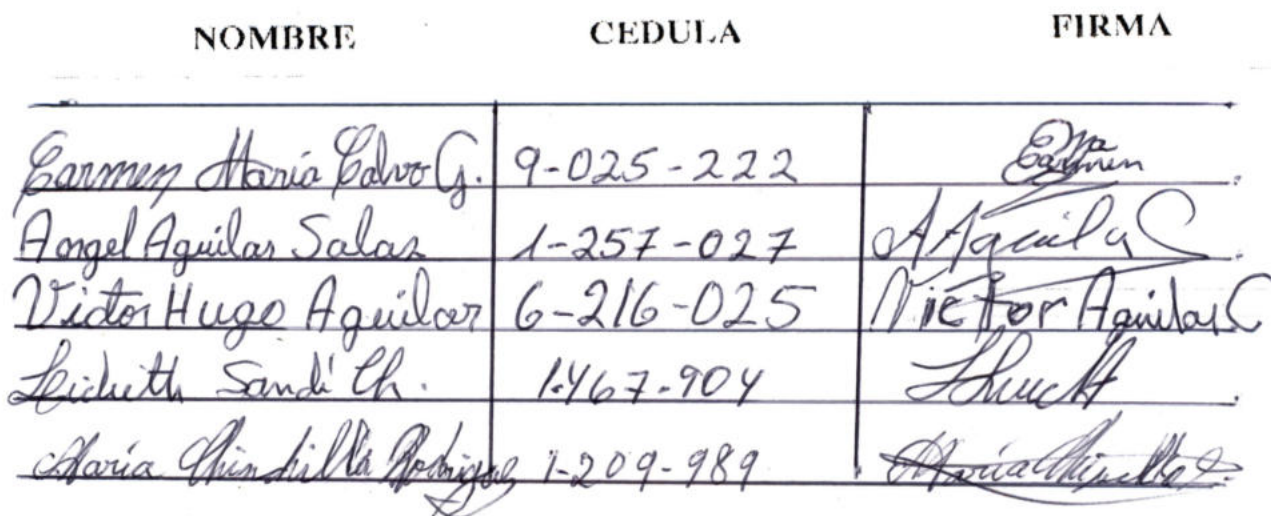 NOMBRE CEDULA FIRMA
Carmen María Calvo G. 9-025-222 Carmen
Angel Aguilar Salas 1-257-027 A Aguila
Victor Hugo Aguilar 6-216-025 Victor Aguilar C
Sandí Ch. 1-467-904
María Chinchilla Rodriguez 1-209-989 María Chinchilla